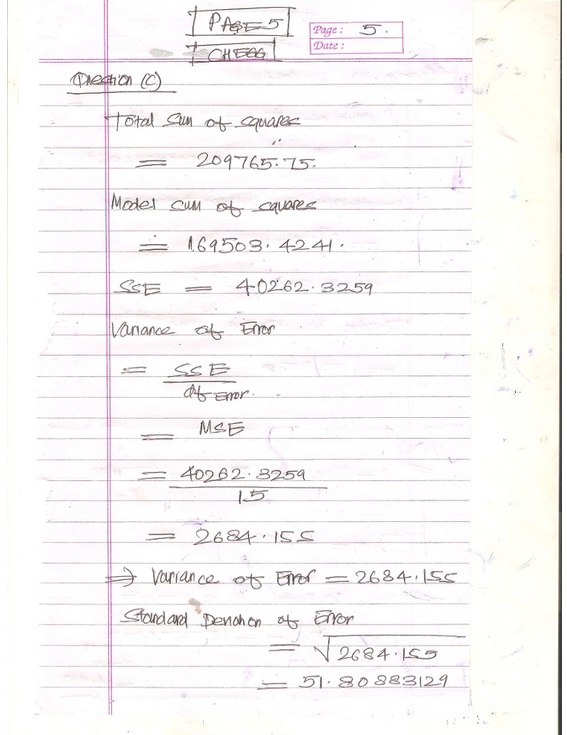 PAGE 5
CHEGG
Page: 5.
Date:
Question (C)
Total Sum of squares
= 209765.75.
Model sum of squares
= 169503.4241.
SSE = 40262.3259
Variance of Error
= SSE
df Error.
= MSE
= 40262.3259
15
= 2684.155
⇒ Variance of Error = 2684.155
Standard Deviation of Error
= √2684.155
= 51.80883129